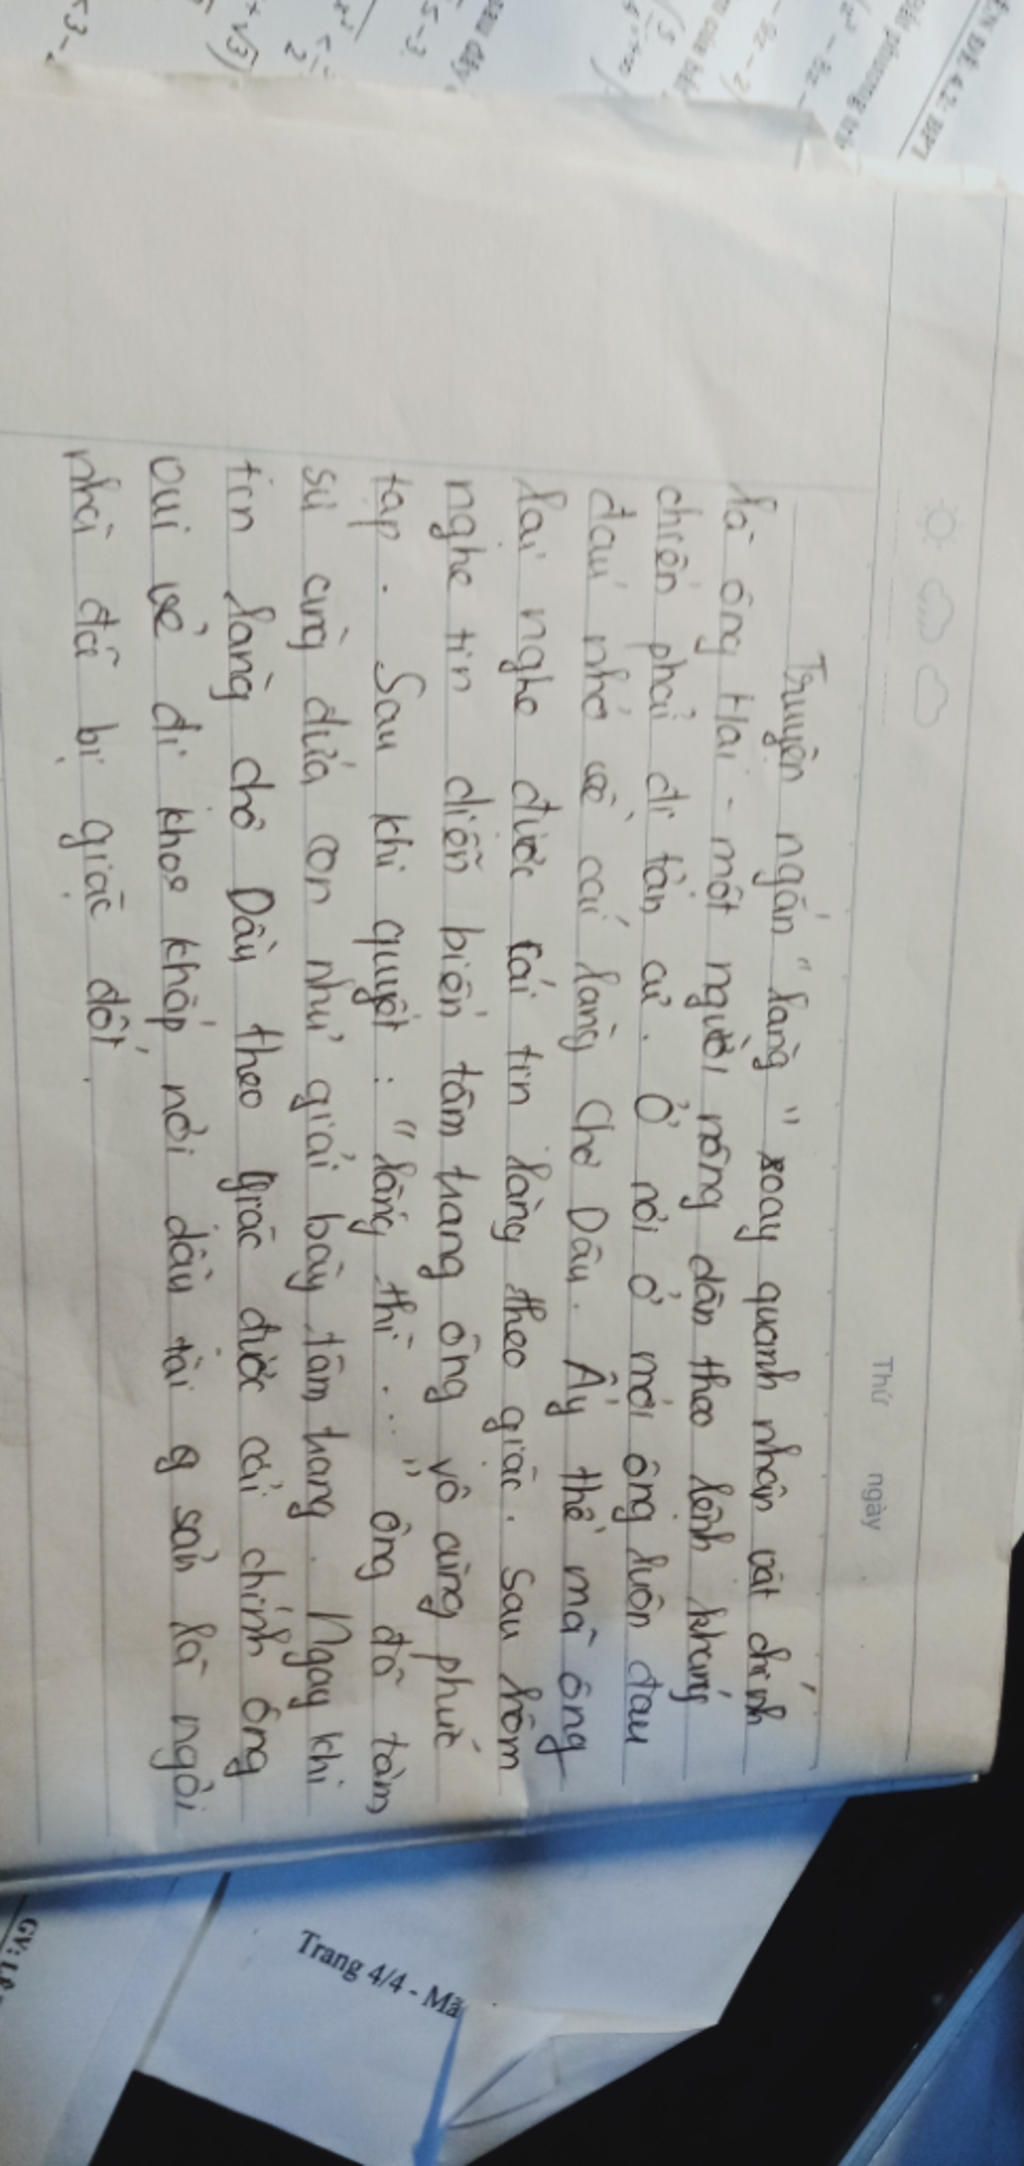 Thứ ngày
Truyện ngắn "làng" xoay quanh nhân vật chính
là ông Hai - một người nông dân theo lệnh kháng
chiến phải đi tản cư. Ở nơi ở mới ông luôn đau
đáu nhớ về cái làng Chợ Dầu. Ấy thế mà ông
lại nghe được cái tin làng theo giặc. Sau hôm
nghe tin diễn biến tâm trạng ông vô cùng phức
tạp. Sau khi quyết : "làng thì ..." ông đã tâm
sự cùng đứa con như giãi bày tâm trạng. Ngay khi
tin làng chợ Dầu theo giặc được cải chính ông
vui vẻ đi khoe khắp nơi dẫu tài g sản là ngôi
nhà đã bị giặc đốt.
Trang 4/4 - Mã
GV: